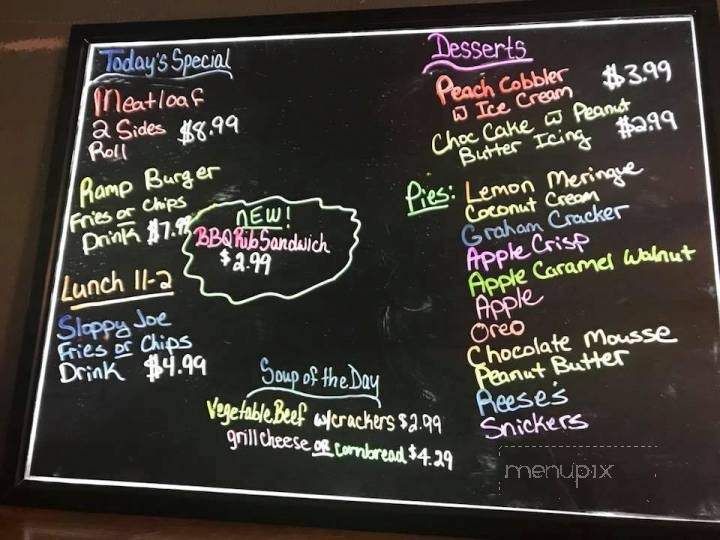 Today's Special
Meatloaf
2 Sides $8.99
Roll
Ramp Burger
Fries or Chips
Drink $7.99
NEW!
BBQ Rib Sandwich
$2.99
Lunch 11-2
Sloppy Joe
Fries or Chips
Drink $4.99
Soup of the Day
Vegetable Beef w/crackers $2.99
grill cheese OR Cornbread $4.29
Desserts
Peach Cobbler $3.99
W Ice Cream
Choc Cake W Peanut
Butter Icing $2.99
Pies: Lemon Meringue
Coconut Cream
Graham Cracker
Apple Crisp
Apple Caramel Walnut
Apple
Oreo
Chocolate Mousse
Peanut Butter
Reese's
Snickers
menupix